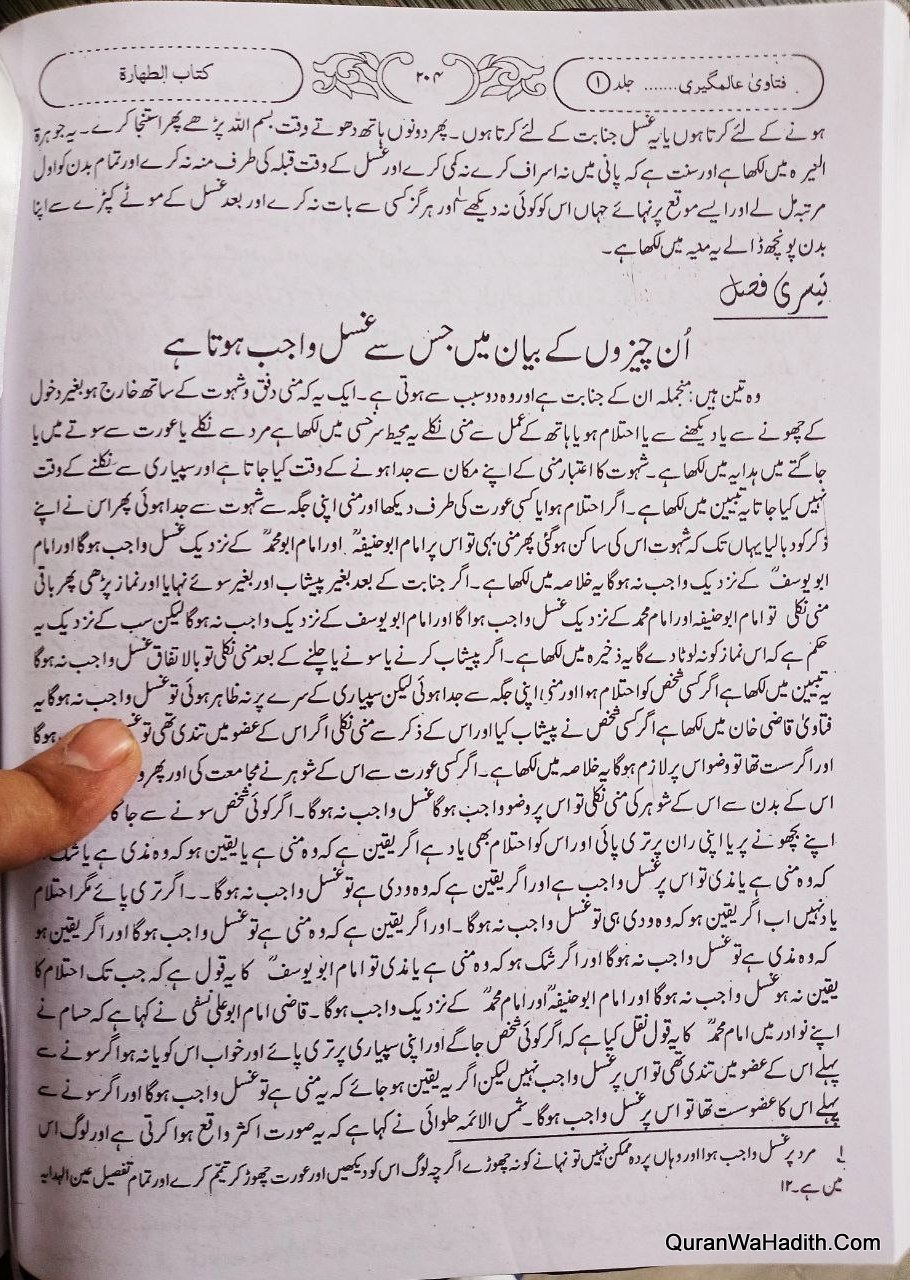 فتاویٰ عالمگیری ....... جلد ۱
۲۰۴
کتاب الطھارۃ
ہونے کے لئے کرتا ہوں یا یہ غسل جنابت کے لئے کرتا ہوں۔ پھر دونوں ہاتھ دھوتے وقت بسم اللہ پڑھے پھر استنجا کرے۔ یہ جوہرۃ
النیرہ میں لکھا ہے اور سنت ہے کہ پانی میں نہ اسراف کرے نہ کمی کرے اور غسل کے وقت قبلہ کی طرف منہ نہ کرے اور تمام بدن کو اول
مرتبہ مل لے اور ایسے موقع پر نہائے جہاں اس کو کوئی نہ دیکھے اور ہرگز کسی سے بات نہ کرے اور بعد غسل کے موٹے کپڑے سے اپنا
بدن پونچھ ڈالے یہ منیہ میں لکھا ہے۔
تیسری فصل
اُن چیزوں کے بیان میں جس سے غسل واجب ہوتا ہے
وہ تین ہیں: منجملہ ان کے جنابت ہے اور وہ دو سبب سے ہوتی ہے۔ ایک یہ کہ منی دفق و شہوت کے ساتھ خارج ہو بغیر دخول
کے چھونے سے یا دیکھنے سے یا احتلام ہو یا ہاتھ کے عمل سے منی نکلے یہ محیط سرخسی میں لکھا ہے مرد سے نکلے یا عورت سے سوتے میں یا
جاگتے میں ہدایہ میں لکھا ہے۔ شہوت کا اعتبار منی کے اپنے مکان سے جدا ہونے کے وقت کیا جاتا ہے اور سپیاری سے نکلنے کے وقت
نہیں کیا جاتا یہ تبیین میں لکھا ہے۔ اگر احتلام ہوا یا کسی عورت کی طرف دیکھا اور منی اپنی جگہ سے شہوت سے جدا ہوئی پھر اس نے اپنے
ذکر کو دبا لیا یہاں تک کہ شہوت اس کی ساکن ہو گئی پھر منی بہی تو اس پر امام ابوحنیفہؒ اور امام ابو محمدؒ کے نزدیک غسل واجب ہوگا اور امام
ابو یوسفؒ کے نزدیک واجب نہ ہوگا یہ خلاصہ میں لکھا ہے۔ اگر جنابت کے بعد بغیر پیشاب اور بغیر سوئے نہایا اور نماز پڑھی پھر باقی
منی نکلی تو امام ابوحنیفہ اور امام محمد کے نزدیک غسل واجب ہوا گا اور امام ابو یوسف کے نزدیک واجب نہ ہوگا لیکن سب کے نزدیک یہ
حکم ہے کہ اس نماز کو نہ لوٹا دے گا یہ ذخیرہ میں لکھا ہے۔ اگر پیشاب کرنے یا سونے یا چلنے کے بعد منی نکلی تو بالاتفاق غسل واجب نہ ہوگا
یہ تبیین میں لکھا ہے اگر کسی شخص کو احتلام ہوا اور منی اپنی جگہ سے جدا ہوئی لیکن سپیاری کے سرے پر نہ ظاہر ہوئی تو غسل واجب نہ ہوگا یہ
فتاویٰ قاضی خان میں لکھا ہے اگر کسی شخص نے پیشاب کیا اور اس کے ذکر سے منی نکلی اگر اس کے عضو میں تندی تھی تو ہوگا
اور اگر ست تھا تو وضو اس پر لازم ہوگا یہ خلاصہ میں لکھا ہے۔ اگر کسی عورت سے اس کے شوہر نے مجامعت کی اور پھر
اس کے بدن سے اس کے شوہر کی منی نکلی تو اس پر وضو واجب ہوگا غسل واجب نہ ہوگا۔ اگر کوئی شخص سونے سے جاگا
اپنے بچھونے پر یا اپنی ران پر تری پائی اور اس کو احتلام بھی یاد ہے اگر یقین ہے کہ وہ منی ہے یا یقین ہو کہ وہ مذی ہے یا شک
کہ وہ منی ہے یا مذی تو اس پر غسل واجب ہے اور اگر یقین ہے کہ وہ ودی ہے تو غسل واجب نہ ہوگا۔۔ اگر تری پائے مگر احتلام
یاد نہیں اب اگر یقین ہو کہ وہ ودی ہی تو غسل واجب نہ ہوگا۔ اور اگر یقین ہے کہ وہ منی ہے تو غسل واجب ہوگا اور اگر یقین ہو
کہ وہ مذی ہے تو غسل واجب نہ ہوگا اور اگر شک ہو کہ وہ منی ہے یا مذی تو امام ابو یوسفؒ کا یہ قول ہے کہ جب تک احتلام کا
یقین نہ ہو غسل واجب نہ ہوگا اور امام ابوحنیفہؒ اور امام محمدؒ کے نزدیک واجب ہوگا۔ قاضی امام ابو علی نسفی نے کہا ہے کہ حسام نے
اپنے نوادر میں امام محمدؒ کا یہ قول نقل کیا ہے کہ اگر کوئی شخص جاگے اور اپنی سپیاری پر تری پائے اور خواب اس کو یاد نہ ہو اگر سونے سے
پہلے اس کے عضو میں تندی تھی تو اس پر غسل واجب نہیں لیکن اگر یہ یقین ہو جائے کہ یہ منی ہے تو غسل واجب ہوگا اور اگر سونے سے
پہلے اس کا عضو ست تھا تو اس پر غسل واجب ہوگا۔ شمس الائمہ حلوائی نے کہا ہے کہ یہ صورت اکثر واقع ہوا کرتی ہے اور لوگ اس
۱ مرد پر غسل واجب ہوا اور وہاں پردہ ممکن نہیں تو نہانے کو نہ چھوڑے اگرچہ لوگ اس کو دیکھیں اور عورت چھوڑ کر تیمم کرے اور تمام تفصیل عین الہدایہ
میں ہے۔۱۲
QuranWaHadith.Com